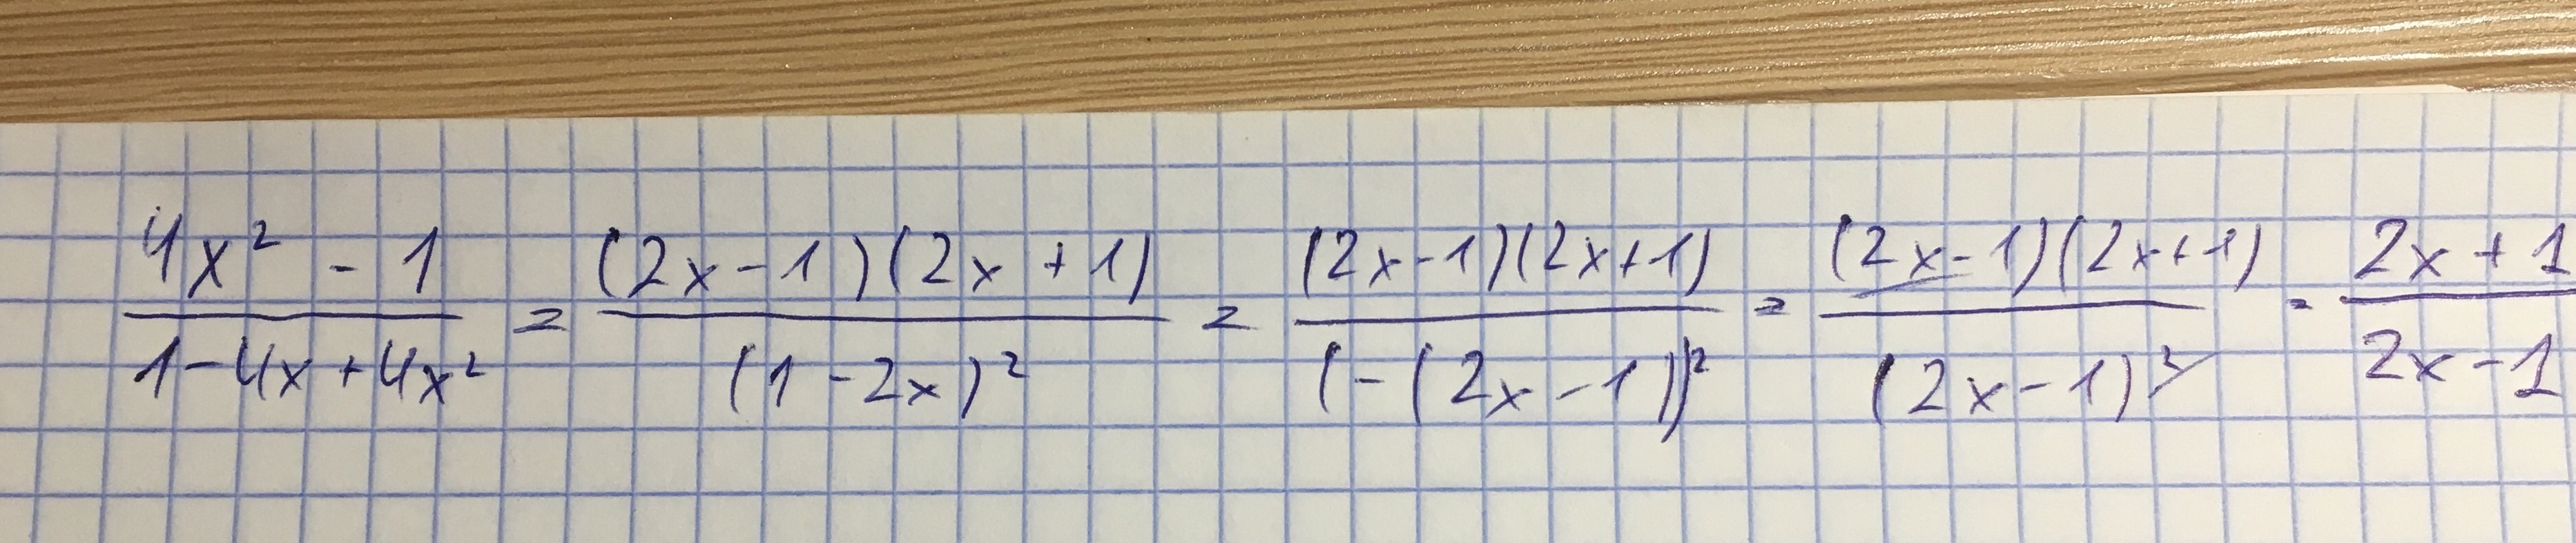 (4x² - 1)/(1 - 4x + 4x²) = ((2x - 1)(2x + 1))/((1 - 2x)²) = ((2x - 1)(2x + 1))/((-(2x - 1))²) = ((2x - 1)(2x + 1))/((2x - 1)²) = (2x + 1)/(2x - 1)